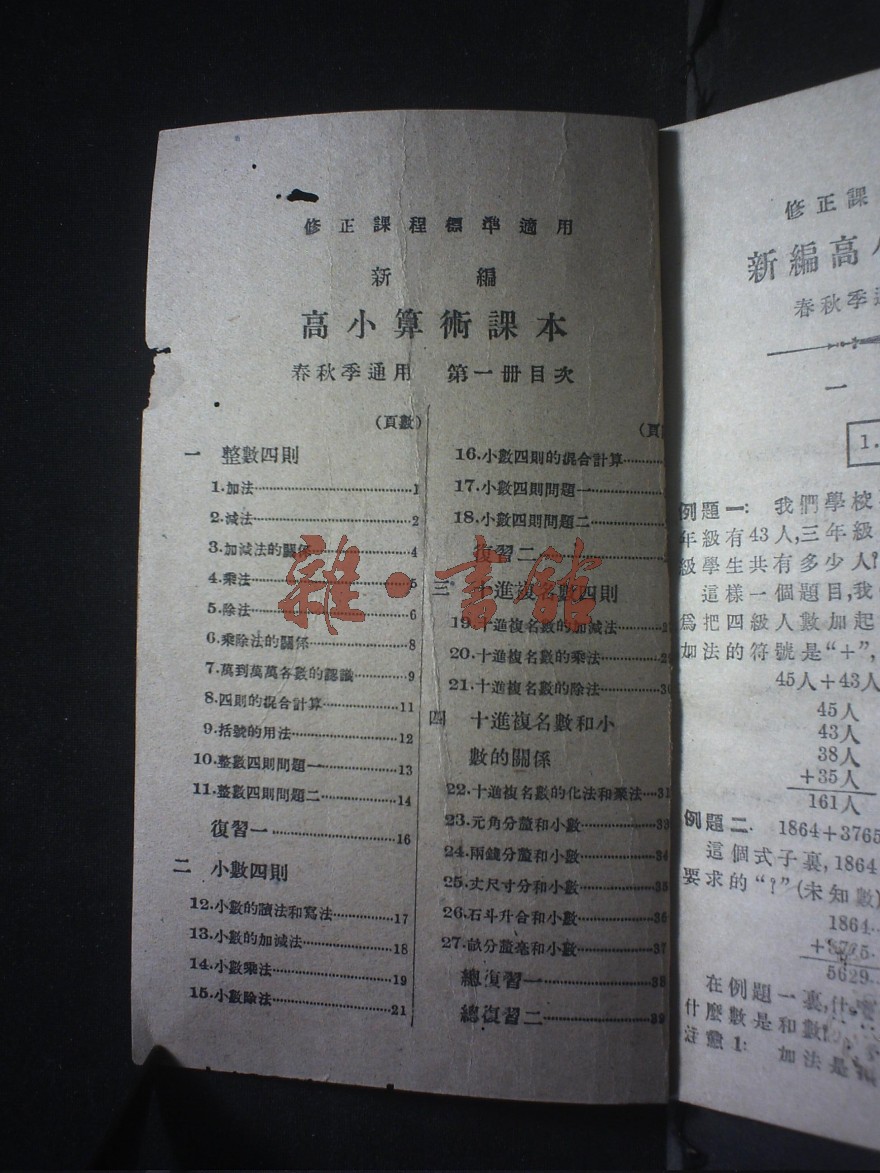 修正課程標準適用
新編
高小算術課本
春秋季通用 第一冊目次
(頁數)
一 整數四則
1.加法……1
2.減法……2
3.加減法的關係……4
4.乘法……5
5.除法……6
6.乘除法的關係……8
7.萬到萬萬各數的認識……9
8.四則的混合計算……11
9.括號的用法……12
10.整數四則問題一……13
11.整數四則問題二……14
復習一……16
二 小數四則
12.小數的讀法和寫法……17
13.小數的加減法……18
14.小數乘法……19
15.小數除法……21
(頁
16.小數四則的混合計算……
17.小數四則問題一……
18.小數四則問題二……
復習二……
三 十進複名數四則
19.十進複名數的加減法……
20.十進複名數的乘法……29
21.十進複名數的除法……30
四 十進複名數和小
數的關係
22.十進複名數的化法和乘法……31
23.元角分釐和小數……33
24.兩錢分釐和小數……34
25.丈尺寸分和小數……35
26.石斗升合和小數……36
27.畝分釐毫和小數……37
總復習一……38
總復習二……39
雜·書館
修正課
新編高
春秋季
一
1.
例題一: 我們學校
年級有43人,三年級
級學生共有多少人?
這樣一個題目,我
爲把四級人數加起
加法的符號是“+”,
45人+43人
45人
43人
38人
+35人
161人
例題二. 1864+3765
這個式子裏,1864
要求的“?”(未知數)
1864
+3765
5629
在例題一裏,什
什麼數是和數?
注意1: 加法是